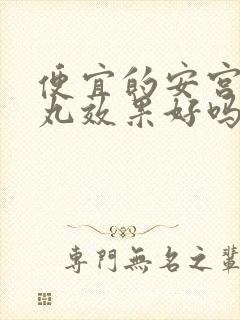 便宜的安宫
丸效果好吗
專門無名之輩